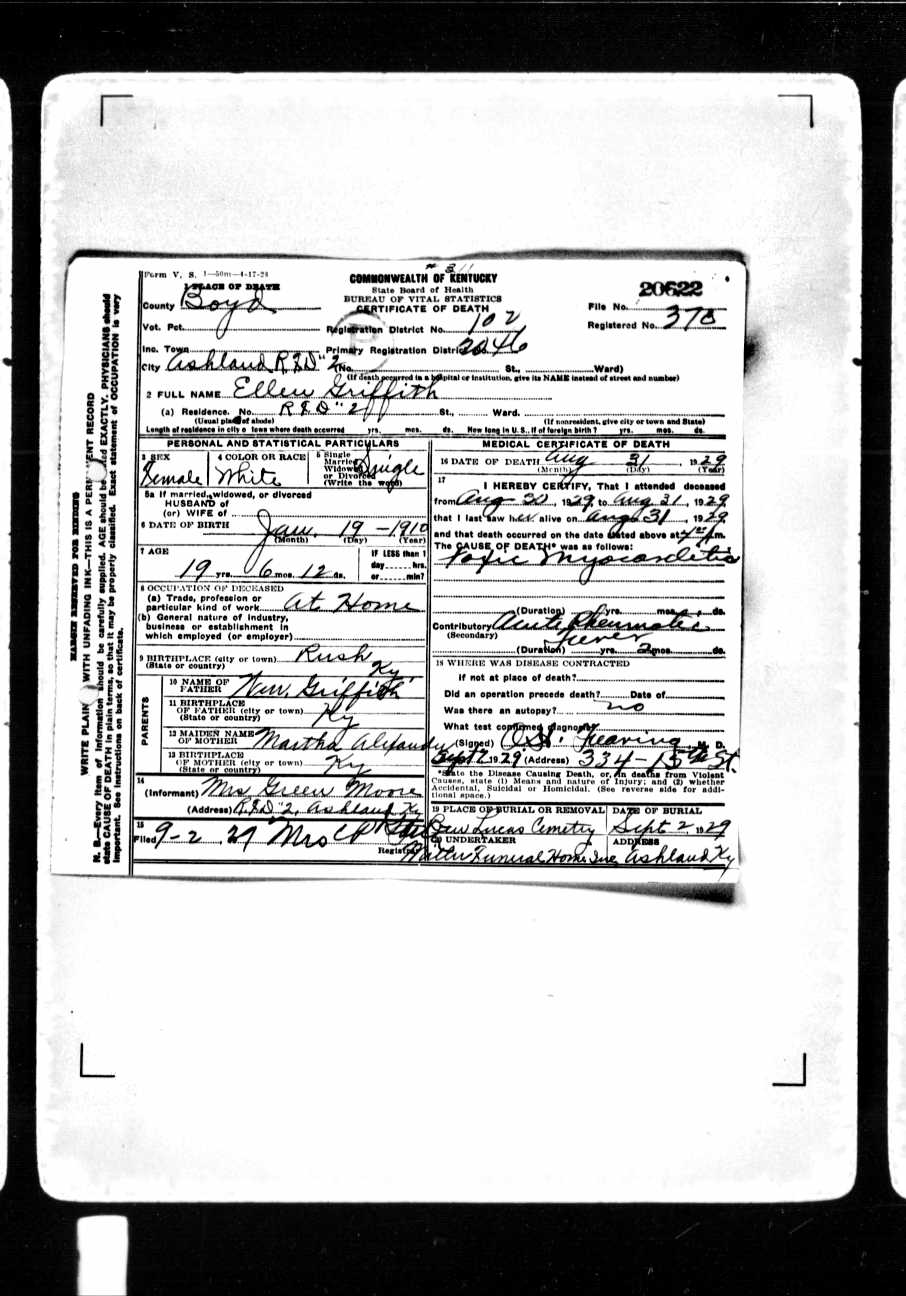 Form V. S. 1—50m—4-17-28
COMMONWEALTH OF KENTUCKY
State Board of Health
BUREAU OF VITAL STATISTICS
CERTIFICATE OF DEATH
20622
File No.
Registered No. 378
1 PLACE OF DEATH
County Boyd
Vot. Pct.
Registration District No. 102
Inc. Town
Primary Registration District No. 2046
City Ashland R.F.D "2 (No. St., Ward)
(If death occurred in a hospital or institution, give its NAME instead of street and number)
2 FULL NAME Ellen Griffith
(a) Residence. No. R F D "2 St., Ward.
(Usual place of abode) (If nonresident, give city or town and State)
Length of residence in city or town where death occurred yrs. mos. ds. How long in U. S., if of foreign birth? yrs. mos. ds.
PERSONAL AND STATISTICAL PARTICULARS
3 SEX Female
4 COLOR OR RACE White
5 Single
Married
Widowed
or Divorced
(Write the word) Single
5a If married, widowed, or divorced
HUSBAND of
(or) WIFE of
6 DATE OF BIRTH Jan. 19 - 1910
(Month) (Day) (Year)
7 AGE
19 yrs. 6 mos. 12 ds.
IF LESS than 1
day hrs.
or min?
8 OCCUPATION OF DECEASED
(a) Trade, profession or
particular kind of work At Home
(b) General nature of Industry,
business or establishment in
which employed (or employer)
9 BIRTHPLACE (city or town) Rush
(State or country) Ky
PARENTS
10 NAME OF
FATHER Wm. Griffith
11 BIRTHPLACE
OF FATHER (city or town) Ky
(State or country)
12 MAIDEN NAME
OF MOTHER Martha Alexander
13 BIRTHPLACE
OF MOTHER (city or town) Ky
(State or country)
14
(Informant) Mrs Green Moore
(Address) R.F.D "2, Ashland Ky
15
Filed 9-2, 29 Mrs
Registrar
MEDICAL CERTIFICATE OF DEATH
16 DATE OF DEATH Aug 31, 1929
(Month) (Day) (Year)
17
I HEREBY CERTIFY, That I attended deceased
from Aug 30, 1929, to Aug 31, 1929
that I last saw her alive on Aug 31, 1929
and that death occurred on the date stated above at m.
The CAUSE OF DEATH* was as follows:
Toxic Myocarditis
(Duration) yrs. mos. ds.
Contributory Acute Rheumatic
(Secondary) Fever
(Duration) yrs. 2 mos. ds.
18 WHERE WAS DISEASE CONTRACTED
if not at place of death?
Did an operation precede death? Date of
Was there an autopsy? no
What test confirmed diagnosis?
(Signed) M. D.
Sept 2 1929 (Address) 334-15th St.
*State the Disease Causing Death, or, in deaths from Violent
Causes, state (1) Means and nature of Injury; and (2) whether
Accidental, Suicidal or Homicidal. (See reverse side for addi-
tional space.)
19 PLACE OF BURIAL OR REMOVAL DATE OF BURIAL
Lucas Cemetry Sept. 2 1929
20 UNDERTAKER ADDRESS
Miller Funeral Home Inc, Ashland Ky
MARGIN RESERVED FOR BINDING
WRITE PLAINLY WITH UNFADING INK—THIS IS A PERMANENT RECORD
N. B.—Every item of information should be carefully supplied. AGE should be stated EXACTLY. PHYSICIANS should
state CAUSE OF DEATH in plain terms, so that it may be properly classified. Exact statement of OCCUPATION is very
important. See instructions on back of certificate.